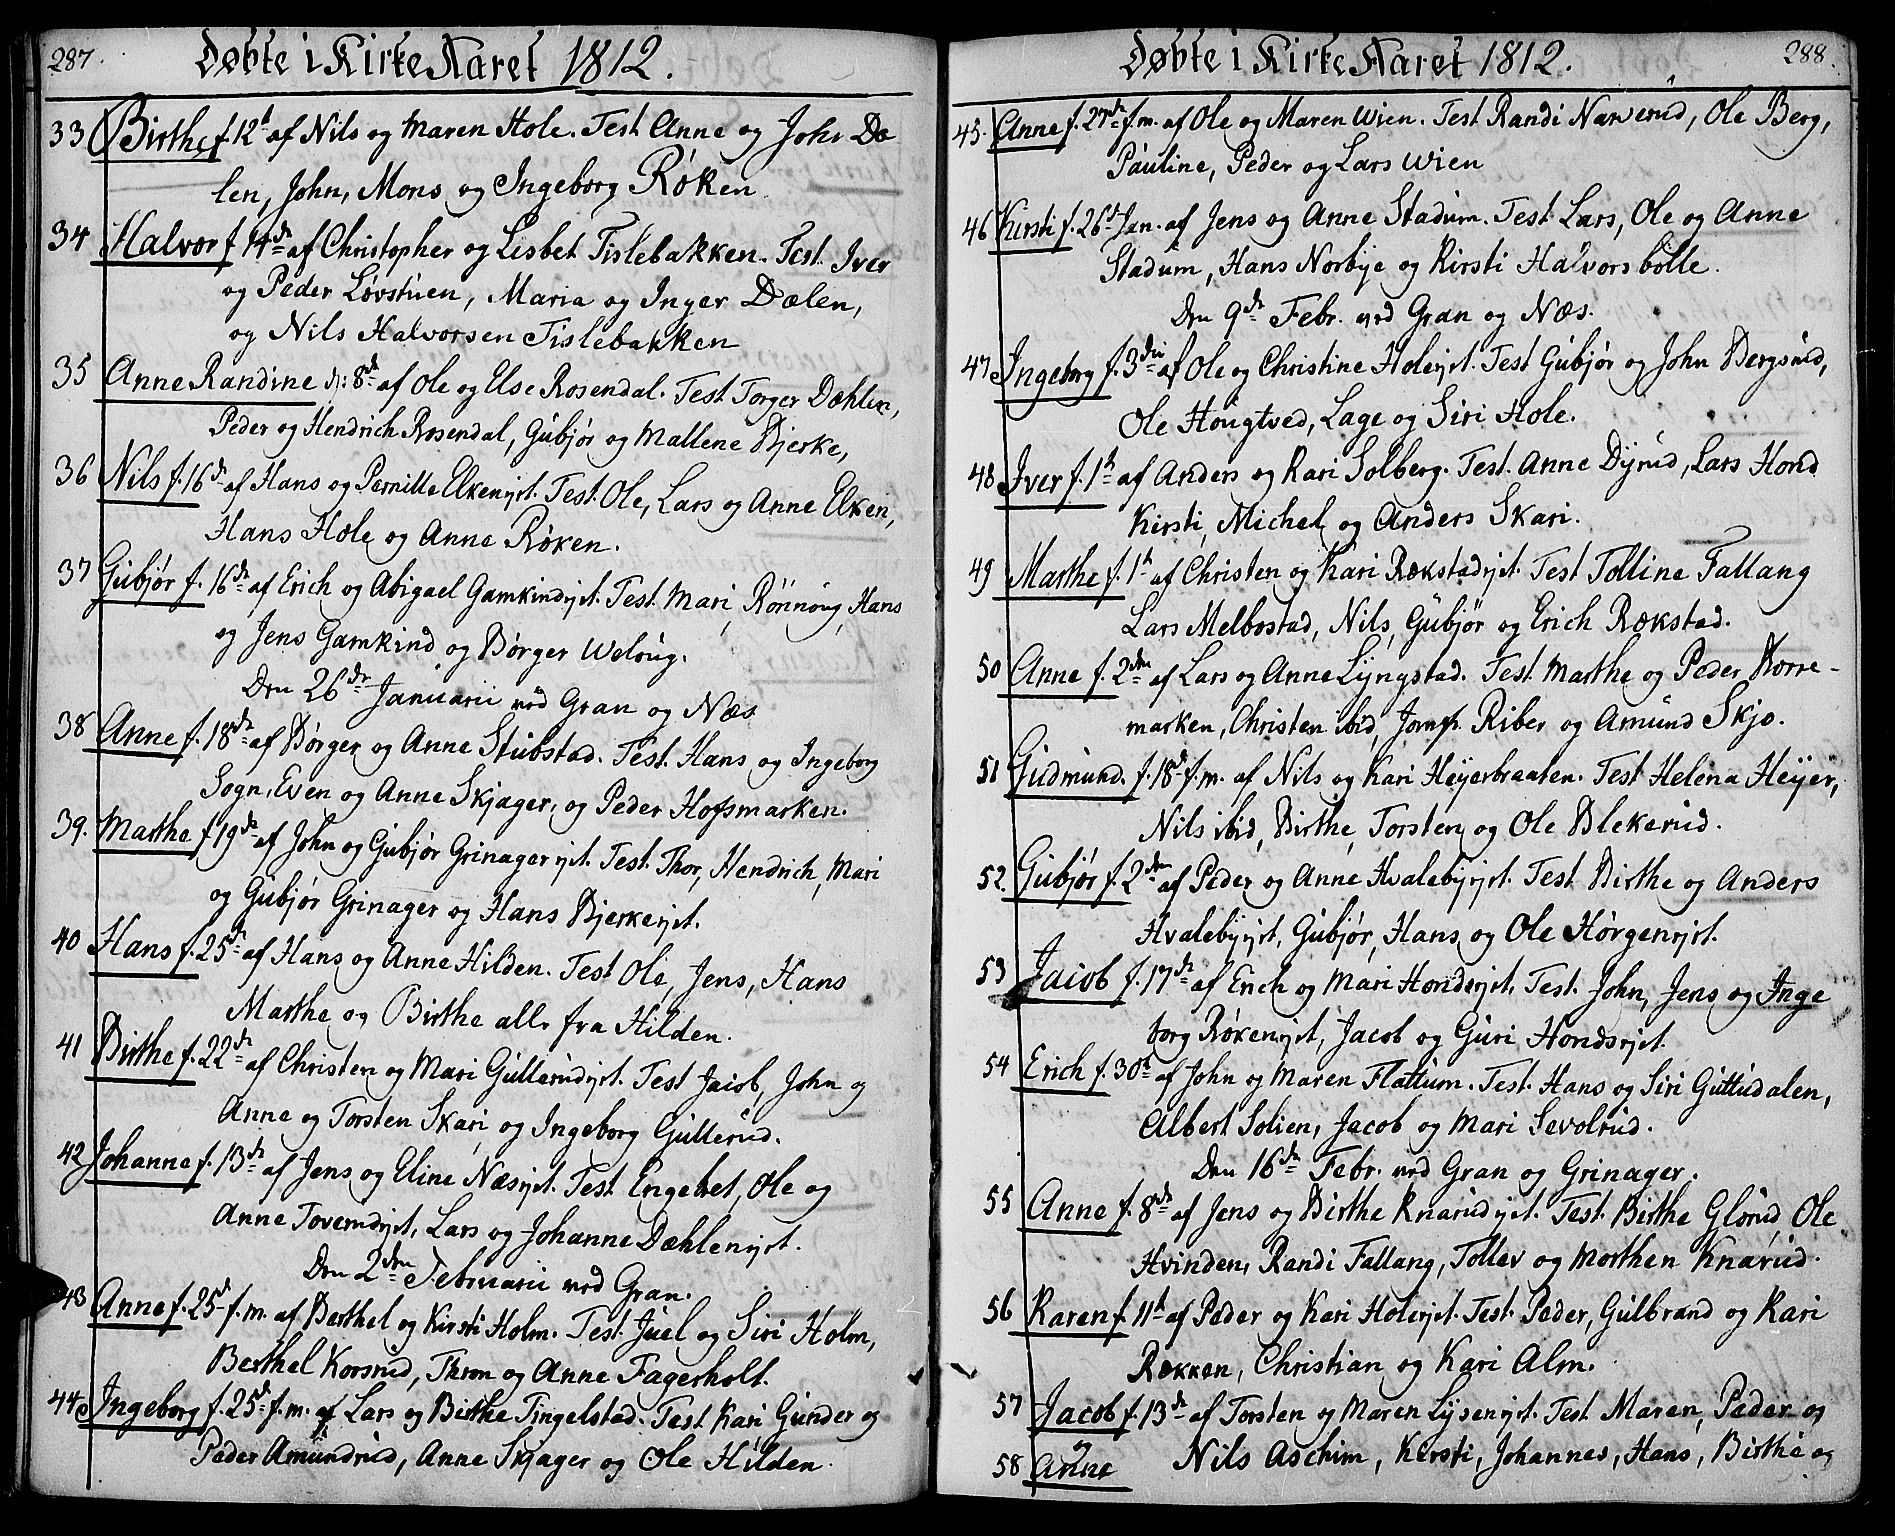 287.
Døbte i Kirke Aaret 1812.
33 Birthe f. 12t af Nils og Maren Hole. Test Anne og John Dæ
len, John, Mons og Ingeborg Røken
34 Halvor f 14de af Christopher og Lisbet Tislebakken. Test. Iver
og Peder Løvstuen, Maria og Inger Dælen,
og Nils Halvorsen Tislebakken
35 Anne Randine 8de af Ole og Else Rosendal. Test Torger Dæhlen,
Peder og Hendrich Rosendal, Gubjør og Mallene Bjerke,
36 Nils f. 16de af Hans og Pernille Elkenejet. Test. Ole, Lars og Anne Elken,
Hans Hole og Anne Røken.
37 Gubjør f. 16de af Erich og Abigael Gamkindejet. Test. Mari, Rönnoug, Hans
og Jens Gamkind og Børger Weloug.
Den 26de Januarii ved Gran og Næs
38 Anne f. 18de af Børger og Anne Stubstad. Test. Hans og Ingeborg
Sogn, Even og Anne Skjager, og Peder Hofsmarken.
39. Marthe f 19de af John og Gubjør Grinagerejet. Test. Thor, Hendrich, Mari
og Gubjør Grinager og Hans Bjerkeejet.
40 Hans f. 25de af Hans og Anne Hilden. Test Ole, Jens, Hans
Marthe og Birthe alle fra Hilden.
41 Birthe f. 22de af Christen og Mari Gullerudejet. Test Jacob, John og
Anne og Torsten Skari og Ingeborg Gullerud.
42 Johanne f. 13de af Jens og Eline Næsejet. Test Engebret, Ole og
Anne Tovemdejet, Lars og Johanne Dæhlenejet.
Den 2den Februarii ved Gran.
43 Anne f. 25de f. m. af Berthel og Kirsti Holm. Test. Juel og Siri Holm,
Berthel Korsrud, Thron og Anne Fagerholt.
44 Ingeborg f. 25de f. m. af Lars og Birthe Tingelstad. Test Kari Gunder og
Peder Amundrud, Anne Skjager og Ole Hilden.
Døbte i Kirke Aaret 1812.
288.
45. Anne f. 27de f. m. af Ole og Maren Wien. Test Randi Narverud, Ole Berg,
Pauline, Peder og Lars Wien
46 Kirsti f. 26de Jan. af Jens og Anne Stadum. Test Lars, Ole og Anne
Stadum, Hans Norbye og Kirsti Halvorsbølle.
Den 9de Febr. ved Gran og Næs.
47 Ingeborg f. 3die af Ole og Christine Holeejet. Test Gubjør og John Bergsund,
Ole Hougtved, Lage og Siri Hole.
48 Iver f. 1te af Anders og Kari Solberg. Test. Anne Dyrud, Lars Hond
Kirsti, Michel og Anders Skari.
49 Marthe f. 1te af Christen og Kari Rækstadejet. Test Tolline Fallang
Lars Melbostad, Nils, Gubjør og Erich Rækstad.
50 Anne f. 2den af Lars og Anne Lyngstad. Test Marthe og Peder Horre-
marken, Christen ibid, Jomfr. Riber og Amund Skjo.
51 Gudmund. f. 18de f. m. af Nils og Kari Heyerbraaten. Test Helena Heyer,
Nils ibid, Birthe, Torsten og Ole Blekerud.
52. Gubjør f. 2den af Peder og Anne Hvalebyejet. Test Birthe og Anders
Hvalebyejet, Gubjør, Hans og Ole Hørgenejet.
53 Jacob f. 17de af Erich og Mari Hondsejet. Test. John, Jens og Inge
borg Røkenejet, Jacob og Guri Hondsejet.
54 Erich f. 30te af John og Maren Flattum. Test. Hans og Siri Guttudalen,
Albert Solien, Jacob og Mari Sevolrud.
Den 16de Febr. ved Gran og Grinager.
55 Anne f. 8de af Jens og Birthe Knarudejet. Test. Birthe Glorud Ole
Hvinden, Randi Fallang, Tollev og Morthen Knarud.
56 Karen f. 11te af Peder og Kari Holeejet. Test. Peder, Gulbrand og Kari
Rækken, Christian og Kari Alm.
57 Jacob f. 13de af Torsten og Maren Lysenejet. Test Maren, Peder og
og Nils Aschim, Kersti, Johannes, Hans, Birthe og
58 Anne